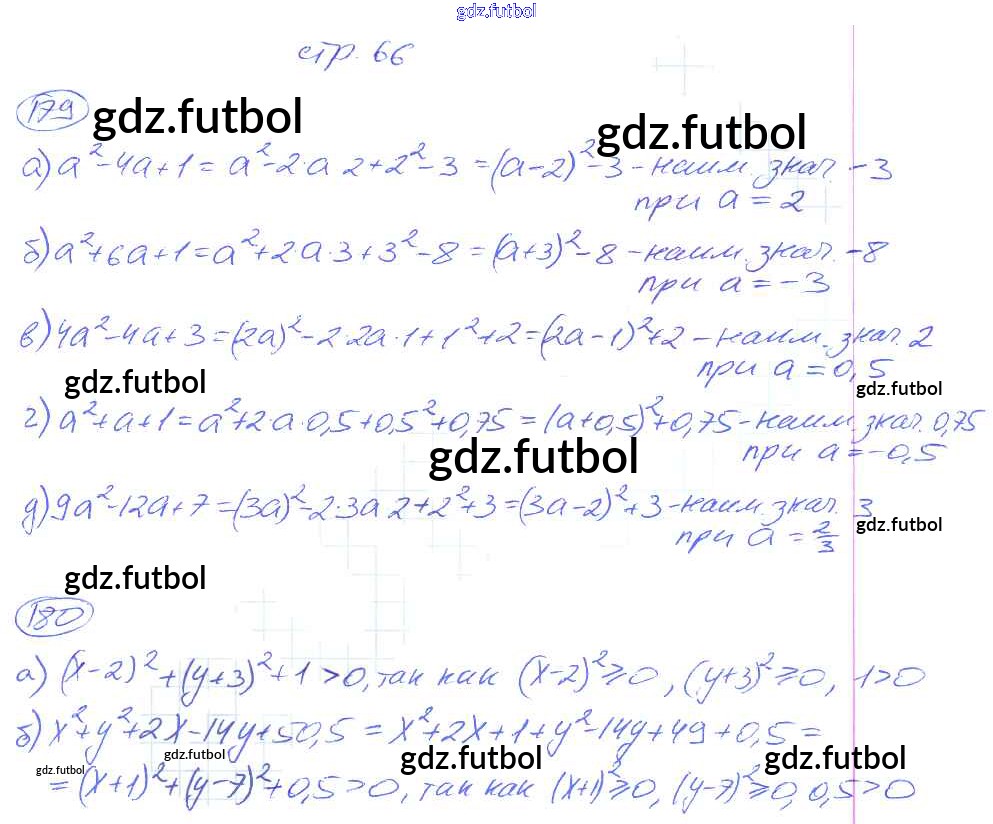 gdz.futbol
стр. 66
179
gdz.futbol gdz.futbol
а) a²-4a+1 = a²-2·a·2+2²-3 = (a-2)²-3 - наим. знач. -3
при a = 2
б) a²+6a+1 = a²+2·a·3+3²-8 = (a+3)²-8 - наим. знач. -8
при a = -3
в) 4a²-4a+3 = (2a)²-2·2a·1+1²+2 = (2a-1)²+2 - наим. знач. 2
при a = 0,5
gdz.futbol gdz.futbol
г) a²+a+1 = a²+2·a·0,5+0,5²+0,75 = (a+0,5)²+0,75 - наим. знач. 0,75
при a = -0,5
gdz.futbol
д) 9a²-12a+7 = (3a)²-2·3a·2+2²+3 = (3a-2)²+3 - наим. знач. 3
при a = 2/3
gdz.futbol
gdz.futbol
180
а) (x-2)²+(y+3)²+1>0, так как (x-2)²≥0, (y+3)²≥0, 1>0
б) x²+y²+2x-14y+50,5 = x²+2x+1+y²-14y+49+0,5 =
gdz.futbol gdz.futbol gdz.futbol gdz.futbol
= (x+1)²+(y-7)²+0,5>0, так как (x+1)²≥0, (y-7)²≥0, 0,5>0